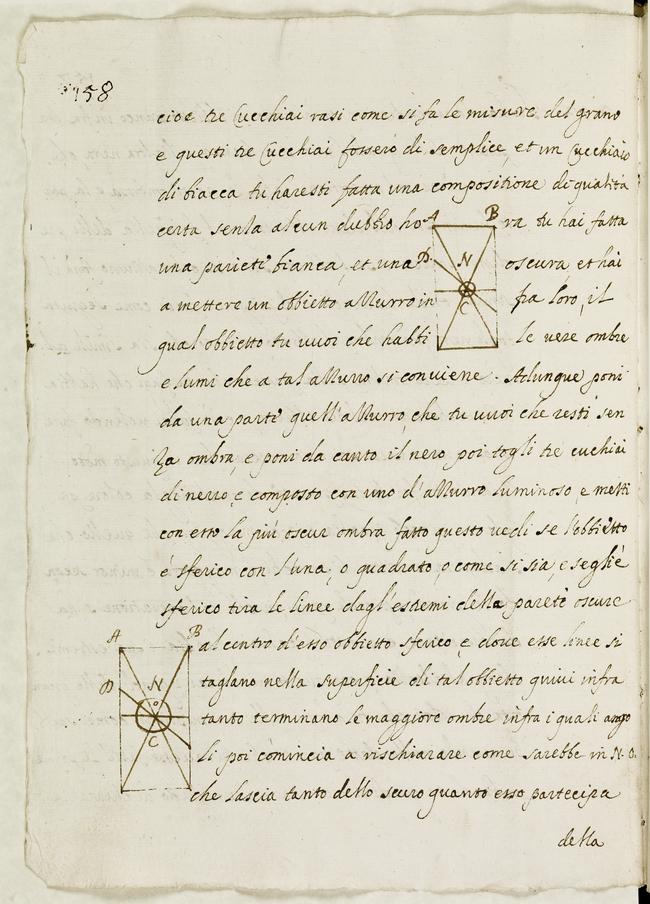 158
cioè tre Cucchiai rasi come si fa le misure del grano
e questi tre Cucchiai fossero di semplice, et un Cucchiaio
di biacca tu haresti fatta una compositione di qualità
certa senza alcun dubbio ho A B ra tu hai fatta
una pariete bianca, et una D N oscura, et hai
a mettere un obbietto azzurro in C fra loro, il
qual obbietto tu vuoi che habbi le vere ombre
e lumi che a tal azzurro si conviene. Adunque poni
da una parte quell'azzurro, che tu vuoi che resti sen
za ombra, e poni da canto il nero poi togli tre cuchiai
di nero, e composto con uno d'azzurro luminoso, e metti
con esso la più oscur ombra fatto questo vedi se l'obbietto
é sferico con l'una, o quadrato, o come si sia, e seglié
sferico tira le linee dagl'estremi della pareté oscure
A B al centro d'esso obbietto sferico, e dove esse linee si
D N taglano nella superficie di tal obbietto quivi infra
o tanto terminano le maggiore ombre infra i quali ango
C li poi comincia a rischiarare come sarebbe in N. O.
che lascia tanto dello scuro quanto esso partecipa
della